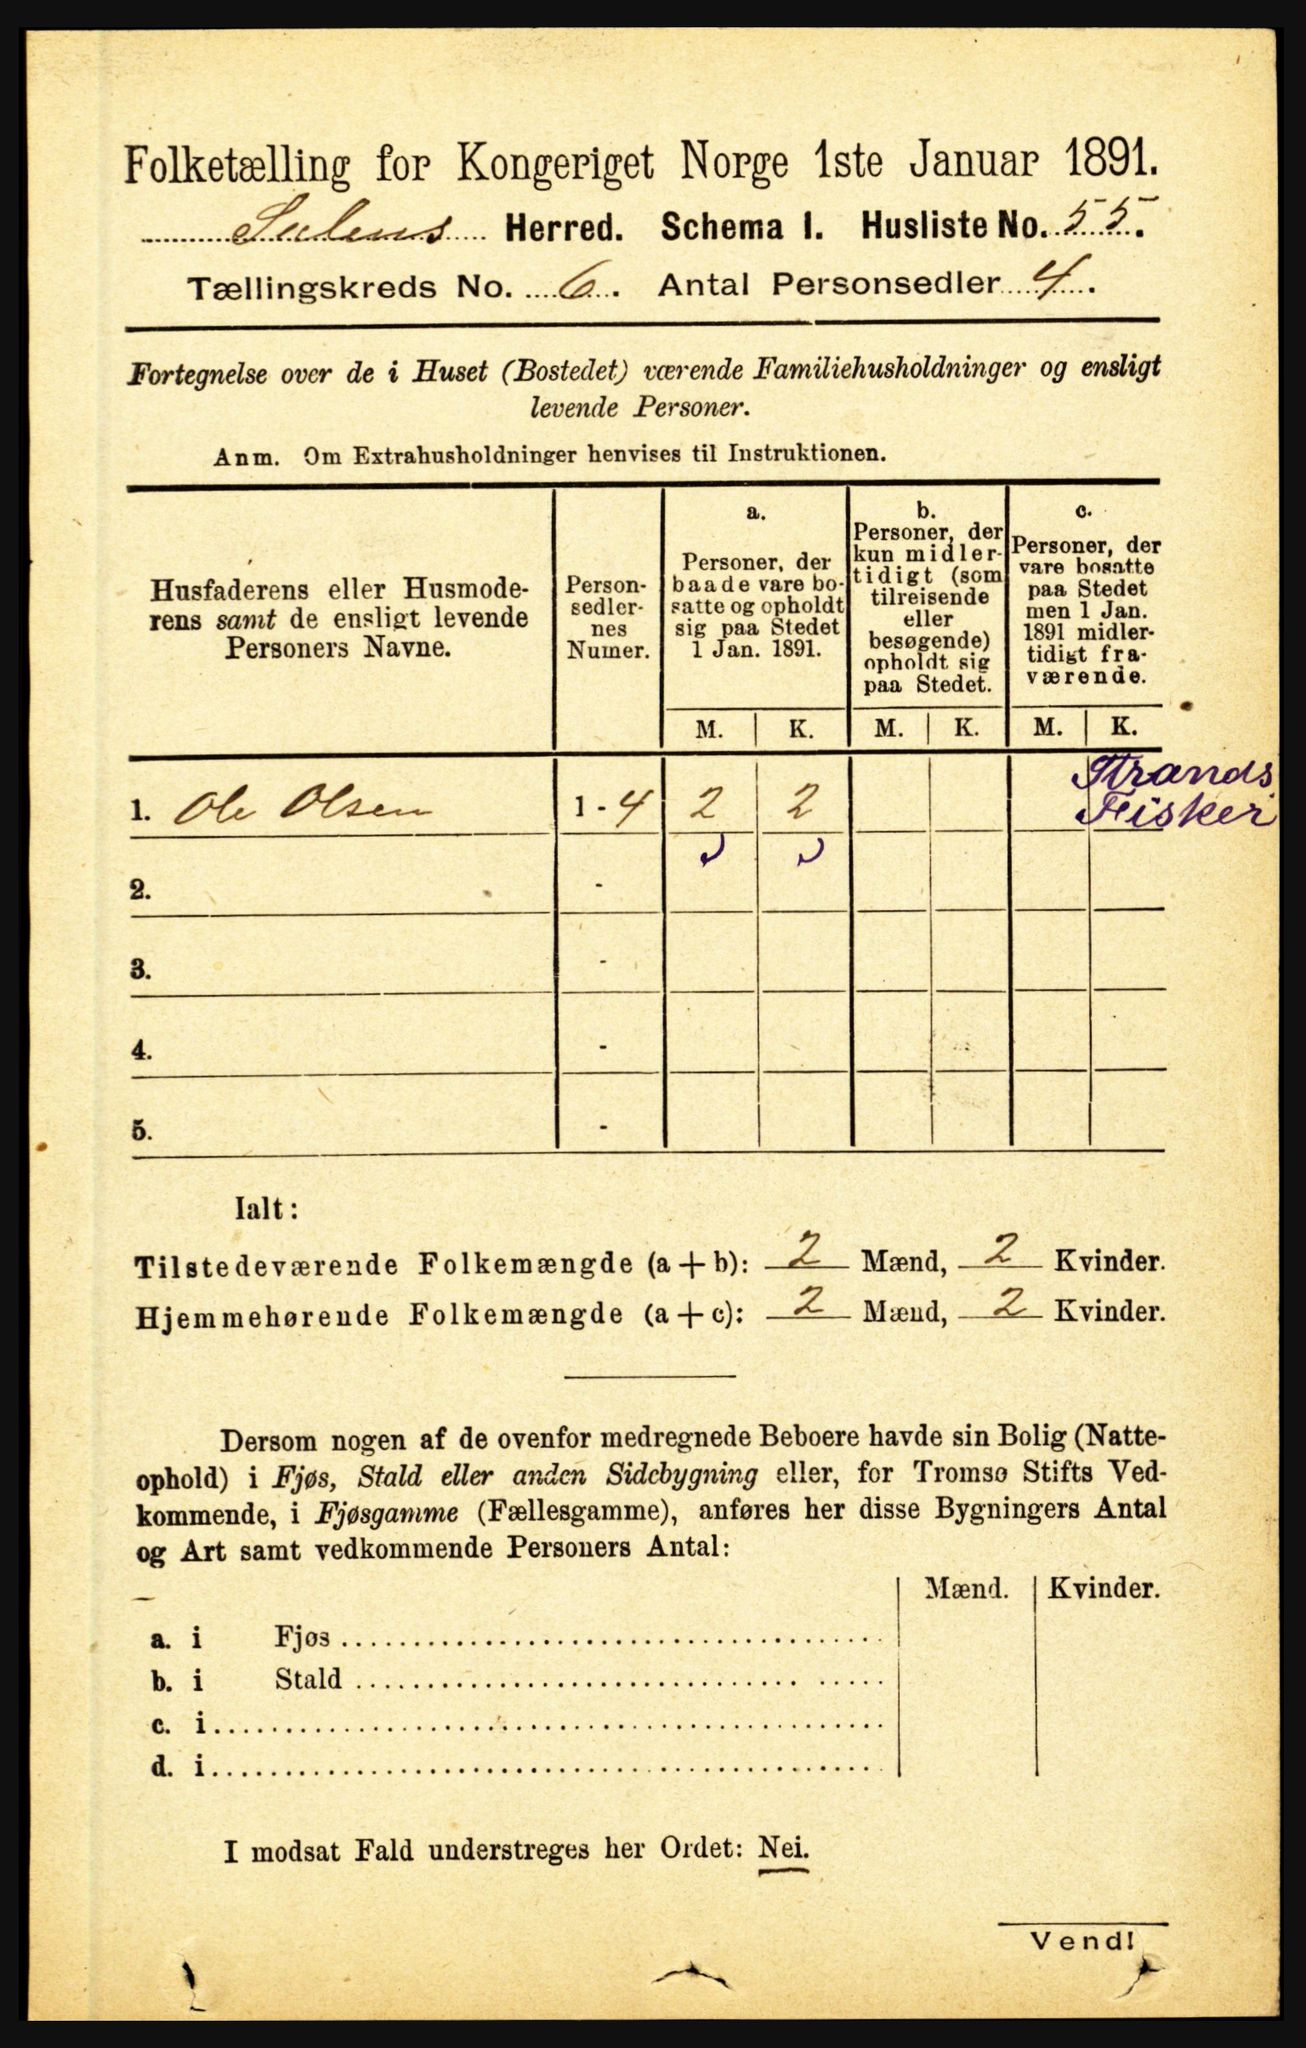 Folketælling for Kongeriget Norge 1ste Januar 1891.
Sulens Herred. Schema I. Husliste No. 55.
Tællingskreds No. 6. Antal Personsedler 4.
Fortegnelse over de i Huset (Bostedet) værende Familiehusholdninger og ensligt
levende Personer.
Anm. Om Extrahusholdninger henvises til Instruktionen.
Husfaderens eller Husmode-
rens samt de ensligt levende
Personers Navne.
Person-
sedler-
nes
Numer.
a.
Personer, der
baade vare bo-
satte og opholdt
sig paa Stedet
1 Jan. 1891.
b.
Personer, der
kun midler-
tidigt (som
tilreisende
eller
besøgende)
opholdt sig
paa Stedet.
c.
Personer, der
vare bosatte
paa Stedet
men 1 Jan.
1891 midler-
tidigt fra-
værende.
M. K. M. K. M. K.
Strands
1. Ole Olsen 1-4 2 2 Fisker
2. -
3. -
4. -
5. -
Ialt:
Tilstedeværende Folkemængde (a + b): 2 Mænd, 2 Kvinder.
Hjemmehørende Folkemængde (a + c): 2 Mænd, 2 Kvinder.
Dersom nogen af de ovenfor medregnede Beboere havde sin Bolig (Natte-
ophold) i Fjøs, Stald eller anden Sidebygning eller, for Tromsø Stifts Ved-
kommende, i Fjøsgamme (Fællesgamme), anføres her disse Bygningers Antal
og Art samt vedkommende Personers Antal:
Mænd. Kvinder.
a. i Fjøs
b. i Stald
c. i
d. i
I modsat Fald understreges her Ordet: Nei.
Vend!